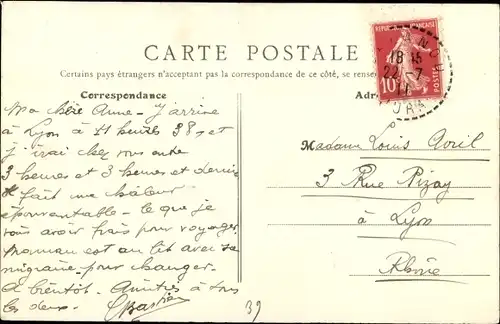 CARTE POSTALE
Certains pays étrangers n'acceptant pas la correspondance de ce côté, se rense
Correspondance
Adr
REPUBLIQUE FRANÇAISE
POSTES
10
18 15
22 - 7
11
Ma chère Anne - J'arrive
à Lyon à 11 heures 38, et
j'irai chez vous entre
3 heures et 3 heures et demie
Il fait une chaleur
épouvantable - ce que je
vous avoir frais pour voyager
Maman est au lit avec sa
migraine pour changer.
A bientôt. Amitiés à tous
les deux.
Madame Louis Avril
3 Rue Pizay
à Lyon
Rhône
39